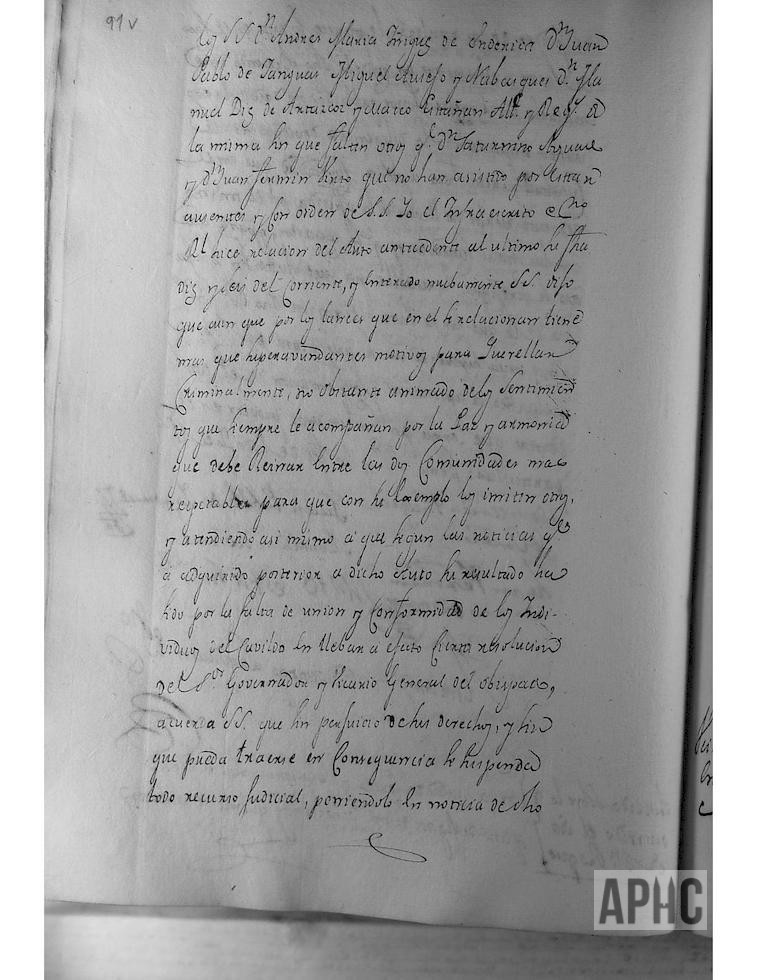 91 v
los S S. Dn. Andres Maria Iñiguez de Dn. Juan
Pablo de Tanguas Miguel y Nabasques Dn. Ma
nuel Diz de y Marco Estañan Alc. y Reg. d
la misma sin que falten otros qe. Dn. Saturnino
y Dn. Juan fermin que no han asistido por estar
ausentes y Con orden de S.S. Yo el Infraescrito esno
Rl. hice relacion del Auto antecedente al ultimo su fha
diz y seis del Corriente, y Enterado muchamente S.S. dijo
que aun que por los lances que en el se relacionan tiene
mas que superavundantes motivos para Querellar
Criminalmente, no obstante animado delos Sentimien
tos que siempre le acompañan por la Paz y armonia
que debe Reinar Entre las dos Comunidades mas
respetables para que con su Exemplo los imiten otros,
y atendiendo asi mismo a que segun las noticias qe
a adquirido posterior a dicho Auto ha resultado ha
sido por la falta de union y Conformidad de los Indi-
viduos del Cavildo En llebar a efecto Cierta resolucion
del Sor. Governador y Vicario General del obispado,
acuerda S.S. que sin perjuicio de sus derechos, y sin
que pueda traerse en Consequencia se suspenda
todo recurso Judicial, poniendolo En noticia de dho
APHC